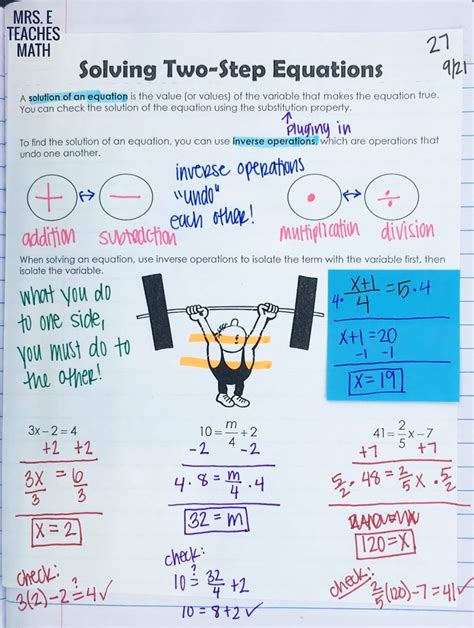 MRS. E
TEACHES
MATH
27
9/21
Solving Two-Step Equations
A solution of an equation is the value (or values) of the variable that makes the equation true.
You can check the solution of the equation using the substitution property.
↑ Pluging in
To find the solution of an equation, you can use inverse operations, which are operations that
undo one another.
+ ↔ −
addition subtraction
inverse operations
"undo"
each other!
• ↔ ÷
multiplication division
When solving an equation, use inverse operations to isolate the term with the variable first, then
isolate the variable.
what you do
to one side,
you must do to
the other!
4 · x+1/4 = 5 · 4
x+1=20
-1 -1
x=19
3x − 2 = 4
+2 +2
3x/3 = 6/3
x=2
check:
3(2)-2≟4✓
10 = m/4 + 2
-2 -2
4 · 8 = m/4 · 4
32 = m
check:
10 ≟ 32/4 + 2
10 = 8+2 ✓
41 = 2/5 x − 7
+7 +7
5/2 · 48 = 2/5 x · 5/2
120=x
check:
2/5(120)-7=41✓